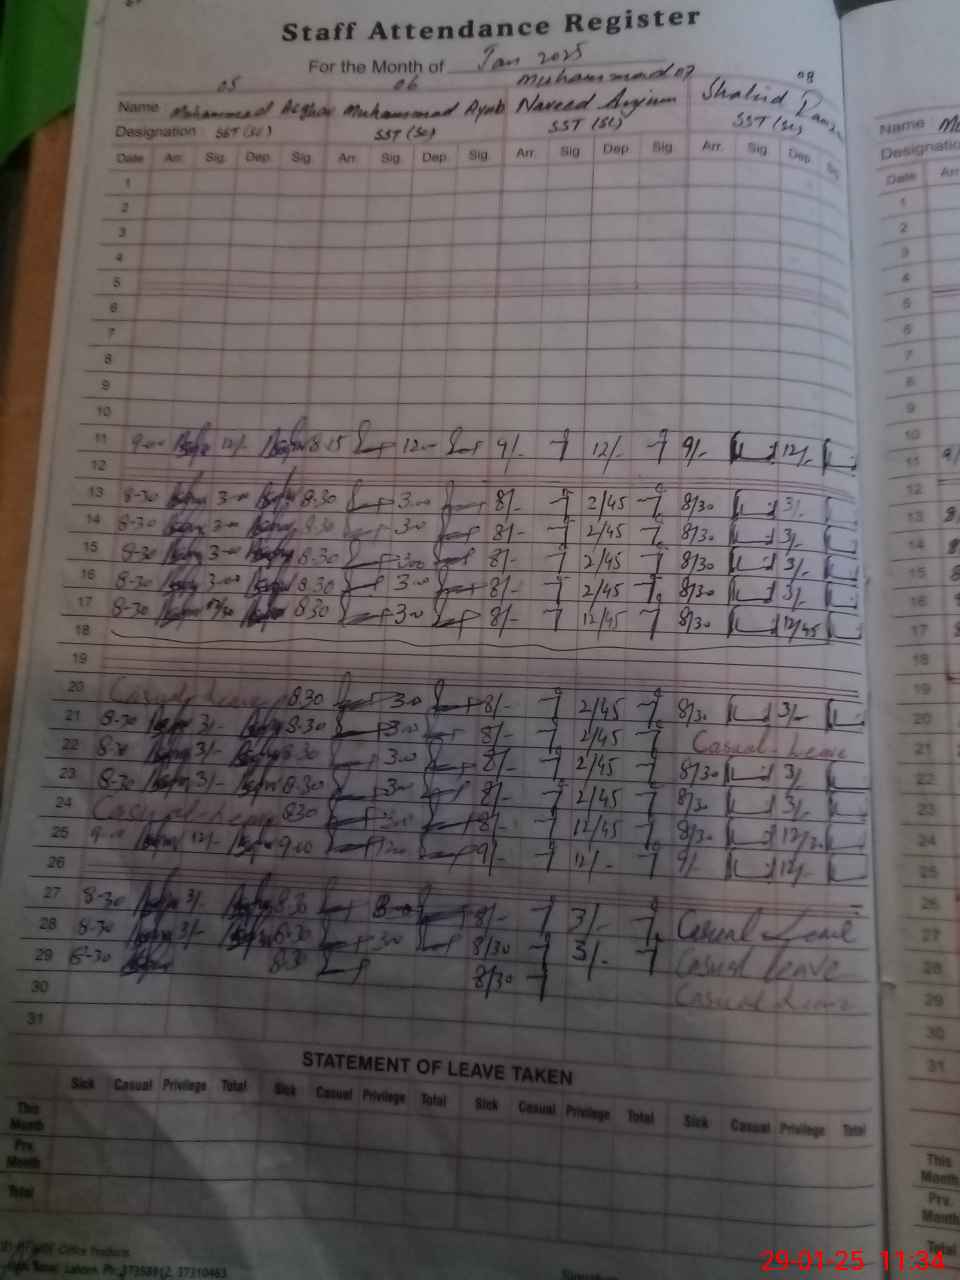 Staff Attendance Register
For the Month of Jan 2025
05 06 Muhammad 07 08
Name Muhammad Asghar Muhammad Ayub Naveed Anjum Shahid
Designation SST (Sc) SST (Sc) SST (Sc) SST (Sc)
Date Arr. Sig. Dep. Sig. Arr. Sig. Dep. Sig. Arr. Sig Dep. Sig. Arr. Sig. Dep. Sig
1
2
3
4
5
6
7
8
9
10
11 9-00 12/- 8.15 12-00 9/- 12/- 9/- 12/-
12
13 8-30 3-00 8.30 3.00 8/- 2/45 8/30 3/-
14 8-30 3-00 8.30 3.00 8/- 2/45 8/30 3/-
15 8-30 3-00 8.30 3.00 8/- 2/45 8/30 3/-
16 8-30 3-00 8.30 3.00 8/- 2/45 8/30 3/-
17 8-30 8.30 3.00 8/- 12/45 8/30 12/45
18
19
20 Casual Leave 8.30 3.00 8/- 2/45 8/30 3/-
21 8-30 3/- 8.30 3.00 8/- 2/45 Casual-Leave
22 8-30 3/- 8.30 3.00 8/- 2/45 8/30 3/-
23 8-30 3/- 8.30 3.00 8/- 2/45 8/30 3/-
24 Casual-Leave 8.30 8/- 12/45 8/30
25 9-00 12/- 9.00 12.00 9/- 12/- 9/- 12/-
26
27 8-30 3/- 8.30 8/- 3/- Casual Leave
28 8-30 3/- 8.30 3.00 8/30 3/- Casual Leave
29 8-30 8.30 8/30 Casual Leave
30
31
STATEMENT OF LEAVE TAKEN
Sick Casual Privilege Total Sick Casual Privilege Total Sick Casual Privilege Total Sick Casual Privilege Total
This Month
Prv. Month
Total
Office Products
Lahore Ph: 37310463
Name
Designation
Date Arr
1
2
3
4
5
6
7
8
9
10
11
12
13
14
15
16
17
18
19
20
21
22
23
24
25
26
27
28
29
30
31
This Month
Prv. Month
Total
29-01-25 11:34